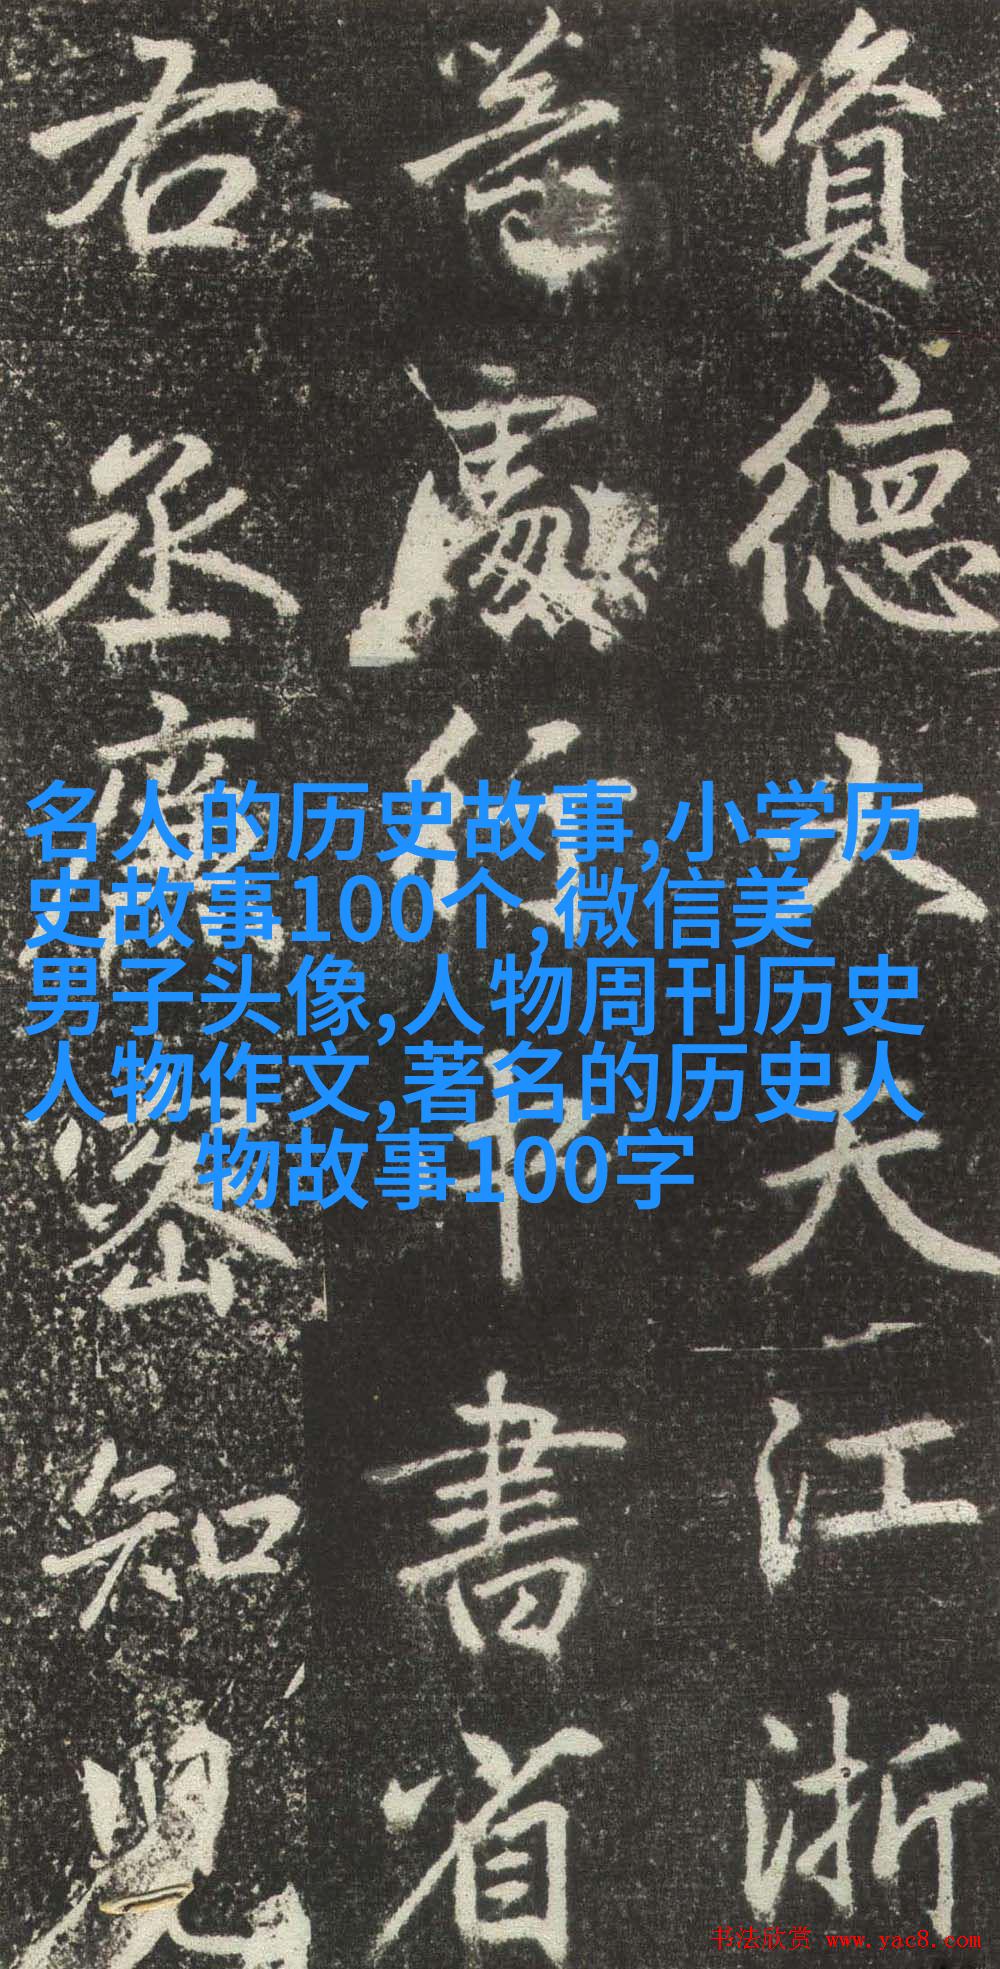 資德大夫江浙
等處行中書省
右丞齊
知
名人的历史故事,小学历
史故事100个,微信美
男子头像,人物周刊历史
人物作文,著名的历史人
物故事100字
书法欣赏 www.yac8.com